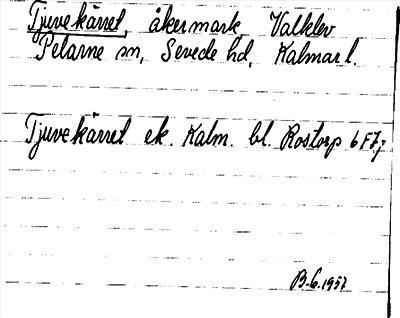 Tjuvekärret, åkermark, Valklev
Pelarne sn, Sevede hd, Kalmar l.
Tjuvekärret ek. Kalm. bl. Rostorp 6F7j
B.G. 1957